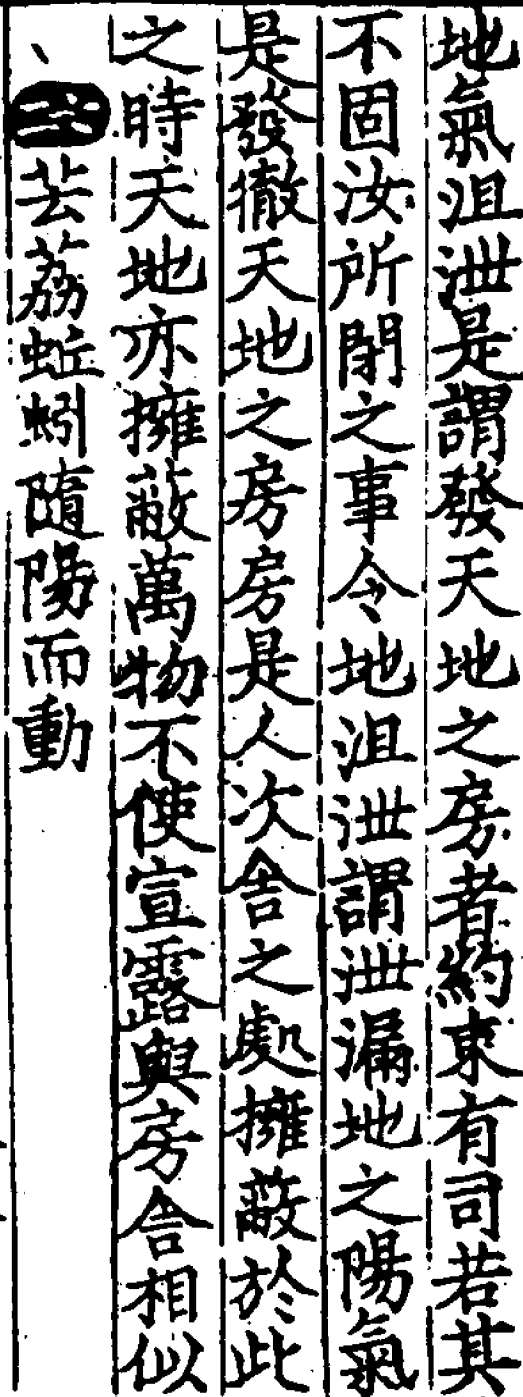 地氣沮泄是謂發天地之房者約束有司若其
不固汝所閉之事令地沮泄謂泄漏地之陽氣
是發徹天地之房房是人次舍之處擁蔽於此
之時天地亦擁蔽萬物不使宣露與房舍相似
芸荔蚯蚓隨陽而動